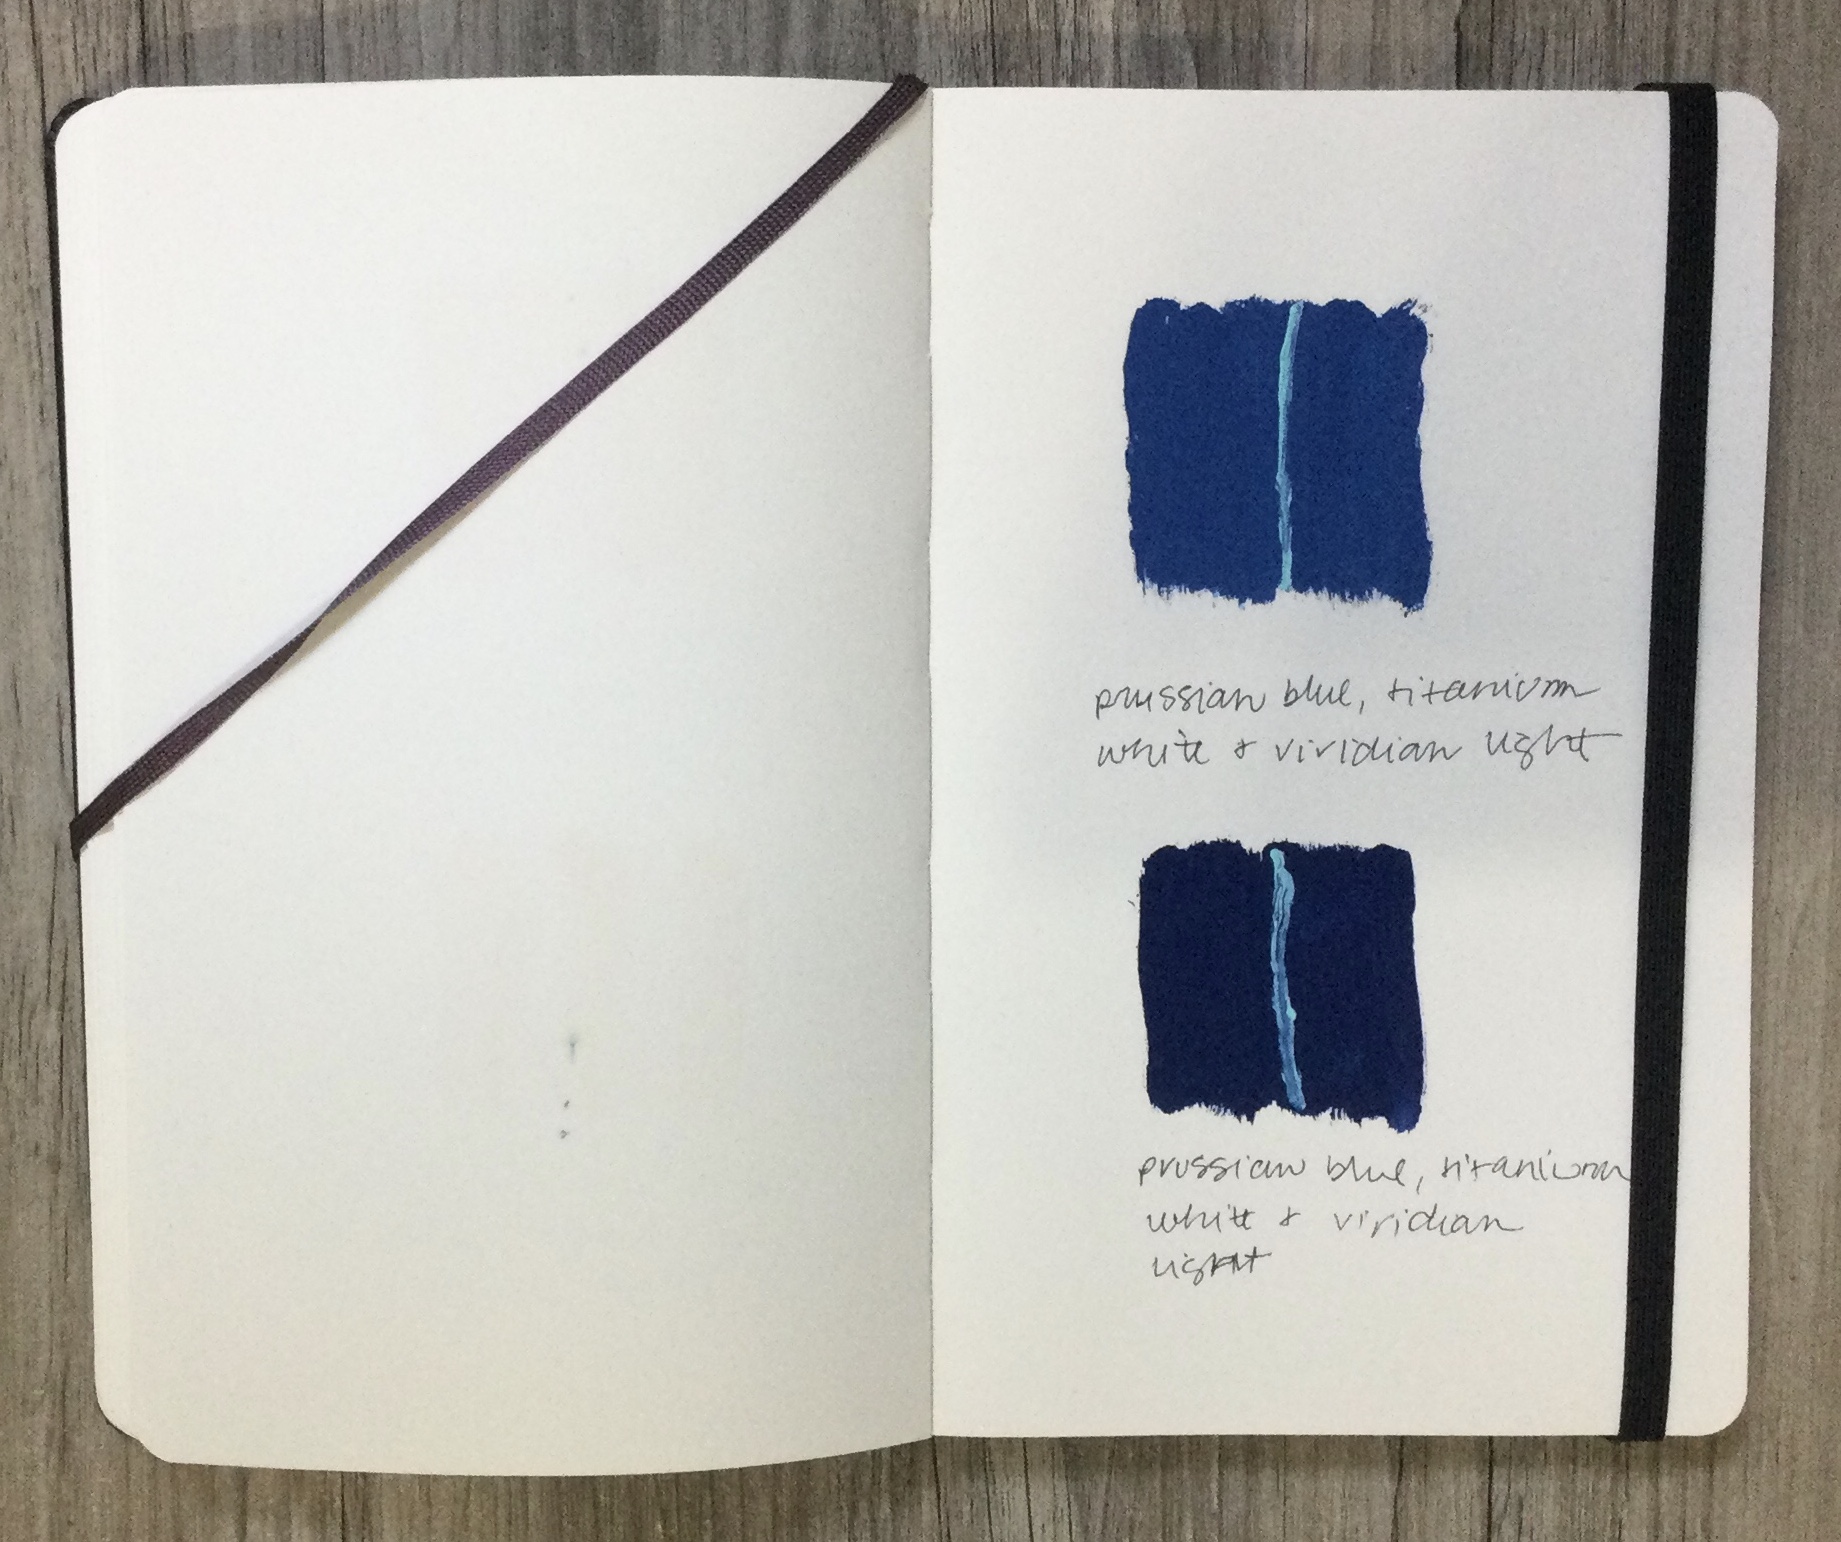 prussian blue, titanium
white & viridian light
prussian blue, titanium
white & viridian
light